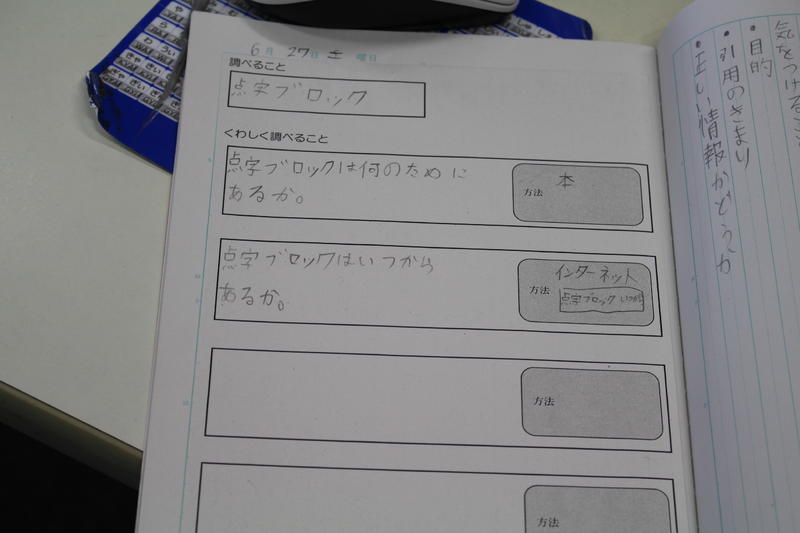 6月27日土曜日
調べること
点字ブロック
くわしく調べること
点字ブロックは何のために
あるか。
方法
本
点字ブロックはいつから
あるか。
方法
インターネット
点字ブロック いつから
方法
方法
気をつけること
・目的
・引用のきまり
・正しい情報かどうか